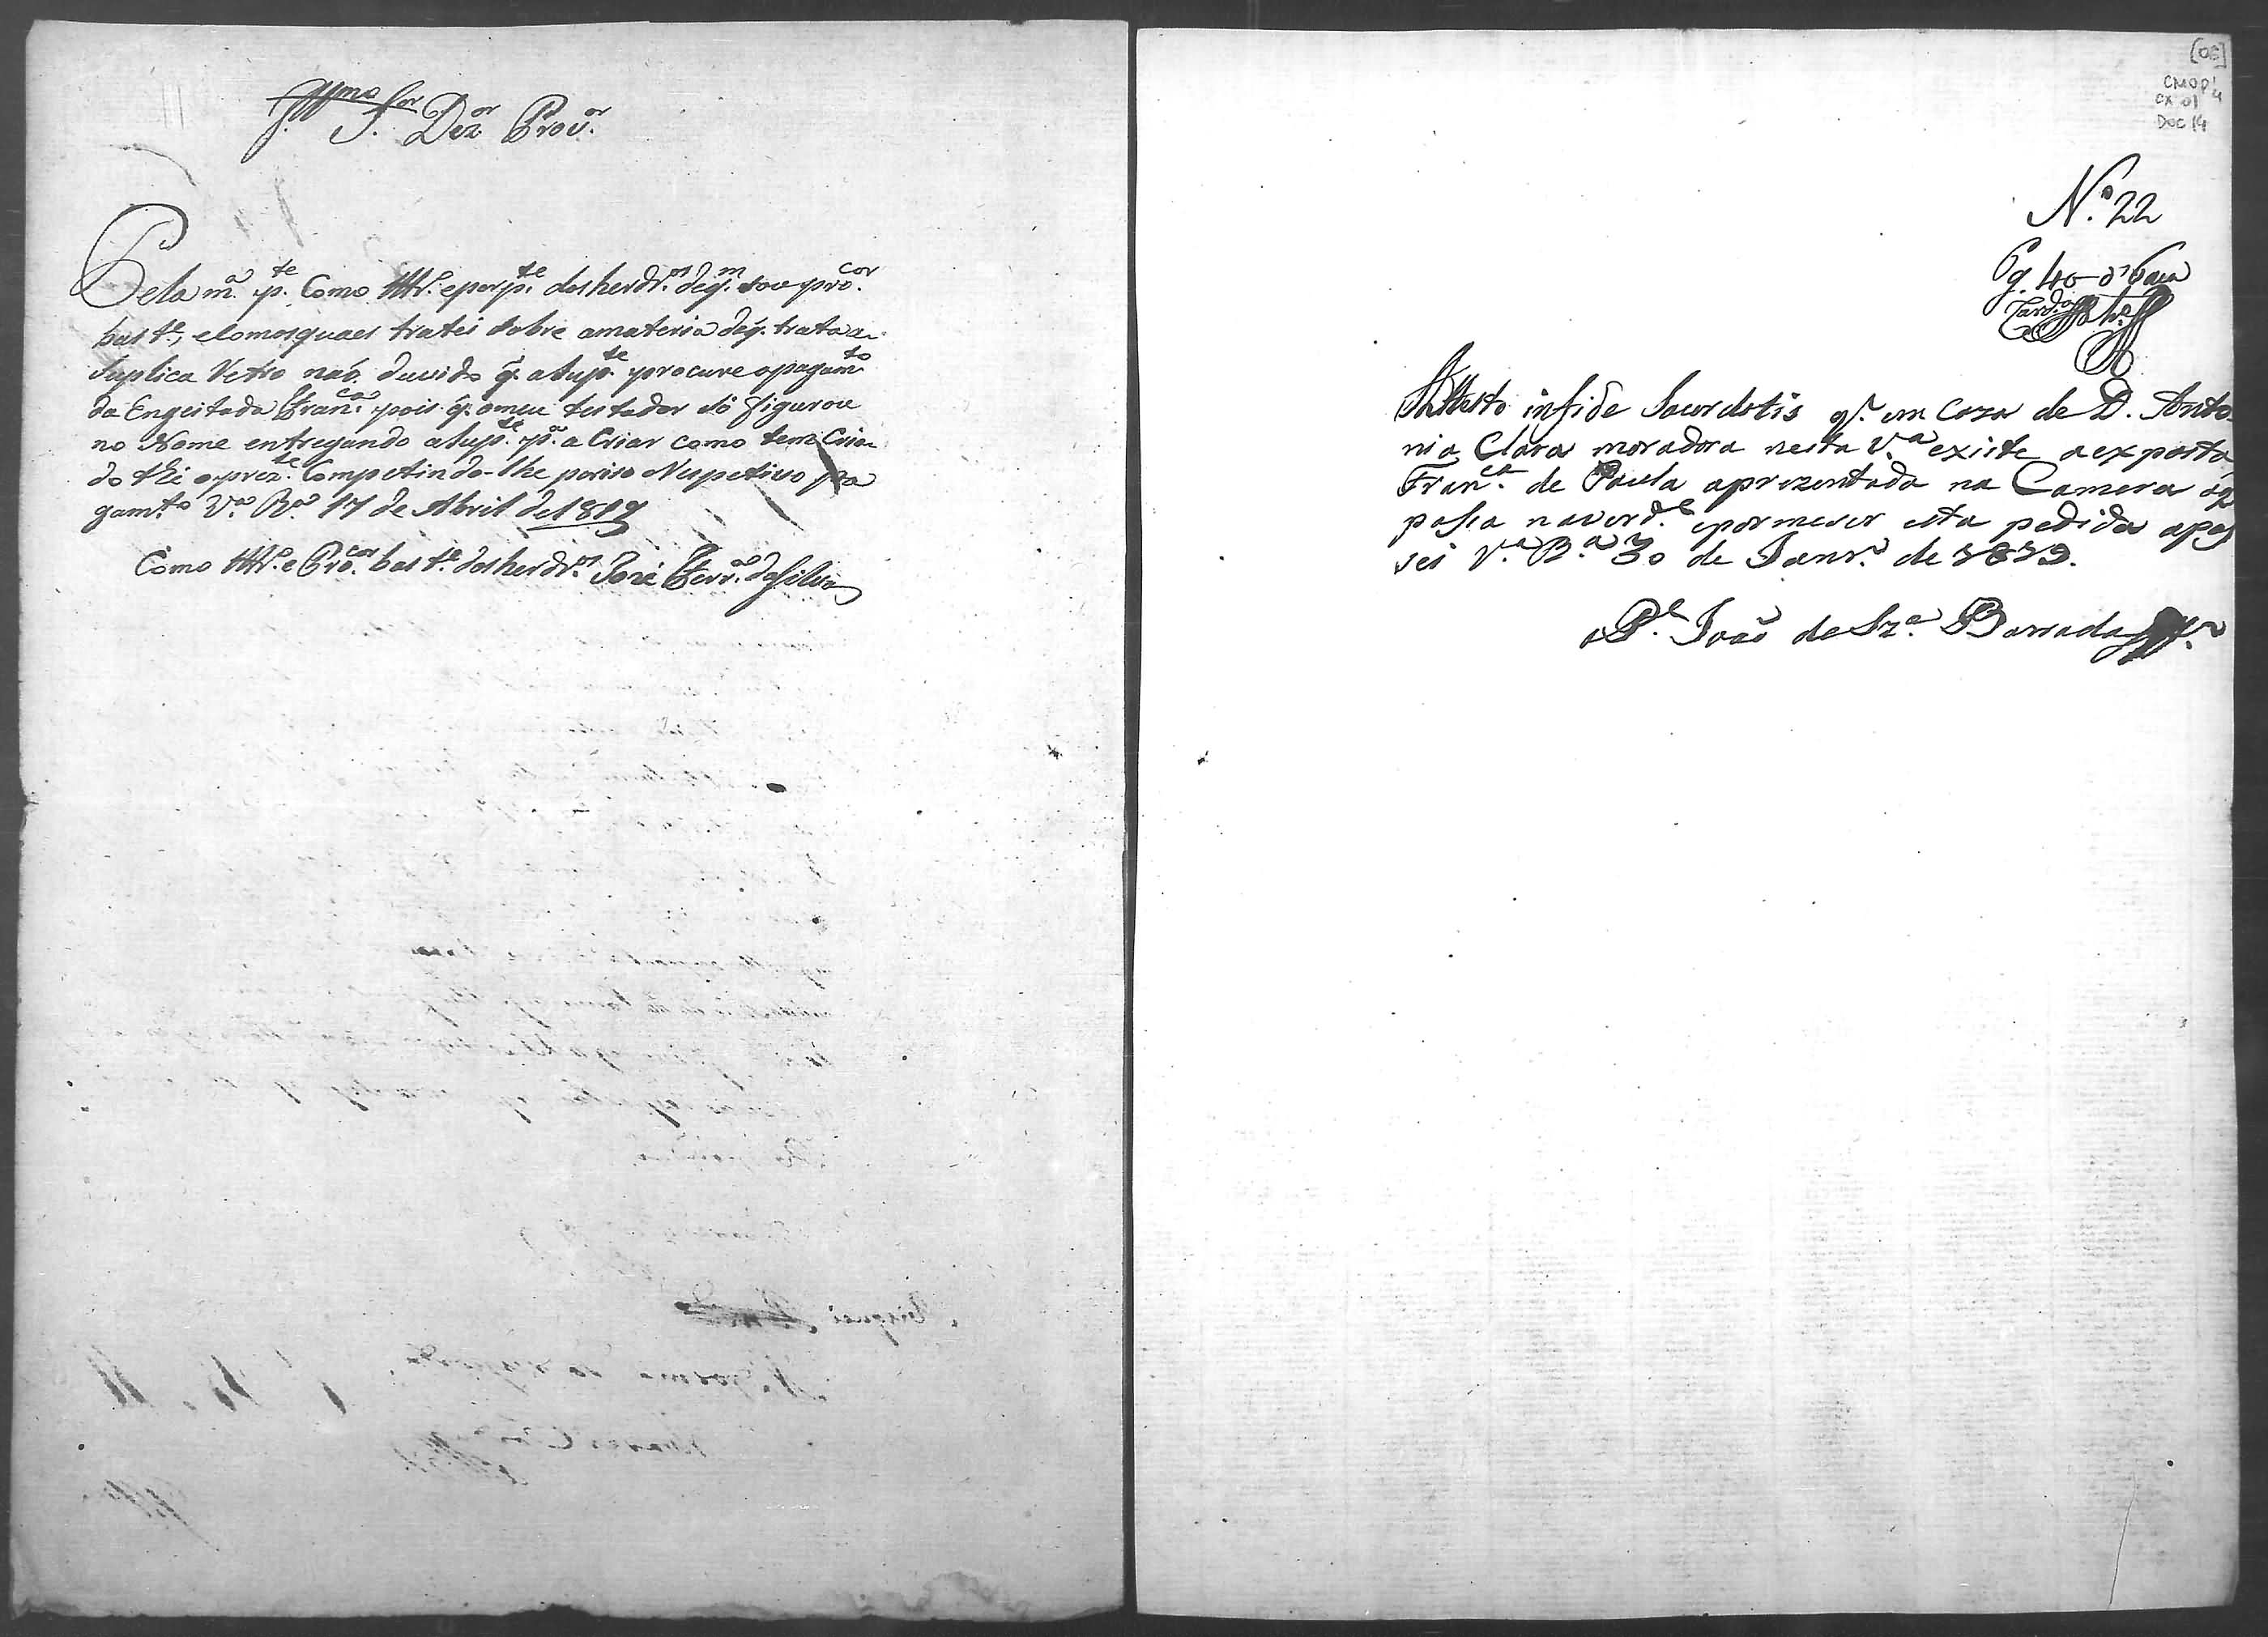 Illmo Snr Dezor Provor
Pela ma pte Como Tttro e por pte dos herdros de qm sou procor
baste, e Com os quaes tratei sobre a materia de q. trata a
Suplica Retro naõ duvido q. a Supte procure o pagamto
da Engeitada Franca pois q. o meu testador só figurou
no Nome entregando a Supte pa a Criar como tem Cria
do thé o prezte Competindo-lhe por iso o Respetivo pa
gamto Va Ra 17 de Abril de 1819
Como Tttro e Procor baste dos herdros José Ferra da Silva
[03]
CMOP
CX 01
DOC 14
No 22
Pg. 40
Attesto in fide Sacerdotis q. em Caza de D. Anto
nia Clara moradora nesta Va existe a exposta
Franca de Paula aprezentada na Camera o q
pasa na verde e por me ser esta pedida a pas
sei Va Ra 30 de Janro de 1819.
o Pe João de Sza Barradas